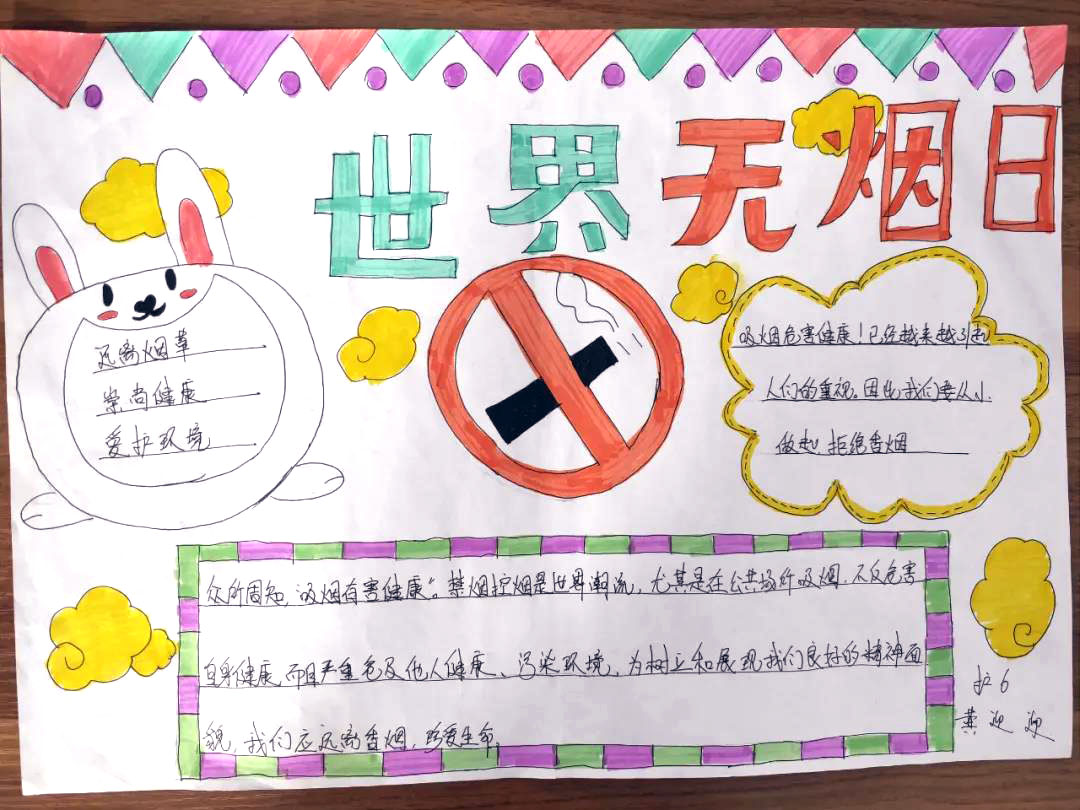 世界无烟日
远离烟草
崇尚健康
爱护环境
吸烟危害健康!已经越来越引起
人们的重视。因此我们要从小
做起,拒绝香烟
众所周知,“吸烟有害健康”。禁烟控烟是世界潮流,尤其是在公共场所吸烟,不仅危害
自身健康,而且严重危及他人健康、污染环境,为树立和展现我们良好的精神面
貌,我们应远离香烟,珍爱生命。
护6
黄迎迎